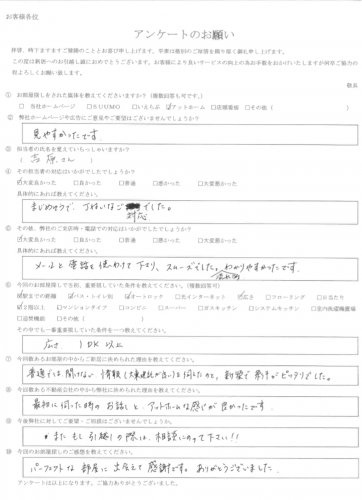 お客様各位
アンケートのお願い
拝啓、時下ますますご清栄のこととお喜び申し上げます。平素は格別のご厚情を賜り厚く御礼申し上げます。
この度は新居へのお引越し誠におめでとうございます。お客様により良いサービスの向上の為お手数をおかけいたしますが何卒ご協力の
程よろしくお願い致します。
敬具
① お部屋探しをされた媒体を教えてください？（複数回答も可です。）
□ 当社ホームページ □ SUUMO □ いえらぶ ☑アットホーム □ 店頭看板 □ その他（ ）
② 弊社ホームページや広告にご意見やご要望はございませんでしょうか？
見やすかったです
③ 担当者の氏名を覚えていらっしゃいますか？
（ 吉原さん ）
④ その担当者の対応はいかがでしたでしょうか？
☑大変良かった □良かった □普通 □悪かった □大変悪かった
具体的にあれば教えてください。
まじめそうで、丁ねいなご でした。
対応
⑤ その後、弊社のご来店時・電話での対応はいかがでしたでしょうか？
☑大変良かった □良かった □普通 □悪かった □大変悪かった
具体的にあれば教えてください。
メールと電話を使いわけて下さり、スムーズでした。わかりやすかったです。
⑥ 今回のお部屋探しでき初、重視していた条件を教えてください。（複数回答可）
□駅までの距離 ☑バス・トイレ別 ☑オートロック □光インターネット ☑広さ □フローリング □日当たり
☑2階以上 □マンションタイプ □コンビニ □スーパー □ガスキッチン □システムキッチン □室内洗濯機置場
□追焚機能 □その他（ ）
その中でも一番重要視していた条件を一つ教えてください。
広さ 1DK以上
⑦ 今回数あるお部屋の中からご新居に決められた理由を教えてください。
普通では聞けない情報（大東建託が古い）を伺えたのと、希望で条件がピッタリでした。
⑧ 今回数ある不動産会社の中から弊社に決められた理由を教えてください。
最初に伺った時のお話しと、アットホームな感じが良かったです
⑨ 今後弊社に対してご要望・ご相談はございませんでしょうか。
・またもし引越しの際は、相談にのって下さい!!
⑩ 今回のお部屋探しのご感想を教えてください。
パーフェクトなお部屋に出会えて感謝です。ありがとうございました
アンケートは以上になります。ご協力ありがとうございました。